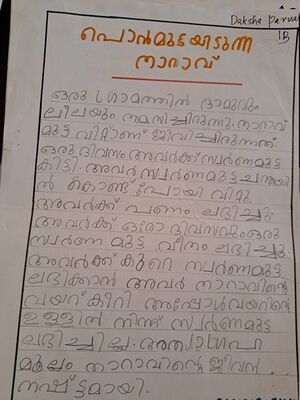 Daksha Parvan
1B
പൊൻമുട്ടയിടുന്ന
താറാവ്
ഒരു ഗ്രാമത്തിൽ ദാമുവും
ലീലയും താമസിച്ചിരുന്നു. താറാവ്
മുട്ട വിറ്റാണ് ജീവിച്ചിരുന്നത്
ഒരു ദിവസം അവർക്ക് സ്വർണമുട്ട
കിട്ടി. അവർ സ്വർണമുട്ട ചന്തയി
ൽ കൊണ്ട് പോയി വിറ്റു.
അവർക്ക് പണം ലഭിച്ചു.
അവർക്ക് ഓരോ ദിവസവും ഒരു
സ്വർണ മുട്ട വീതം ലഭിച്ചു.
അവർക്ക് കുറെ സ്വർണമുട്ട
ലഭിക്കാൻ അവർ താറാവിന്റെ
വയറ് കീറി അപ്പോൾ വയറിന്റെ
ഉള്ളിൽ നിന്ന് സ്വർണമുട്ട
ലഭിച്ചില്ല. അത്യാഗ്രഹ
മൂലം താറാവിന്റെ ജീവൻ
നഷ്ട്ടമായി.